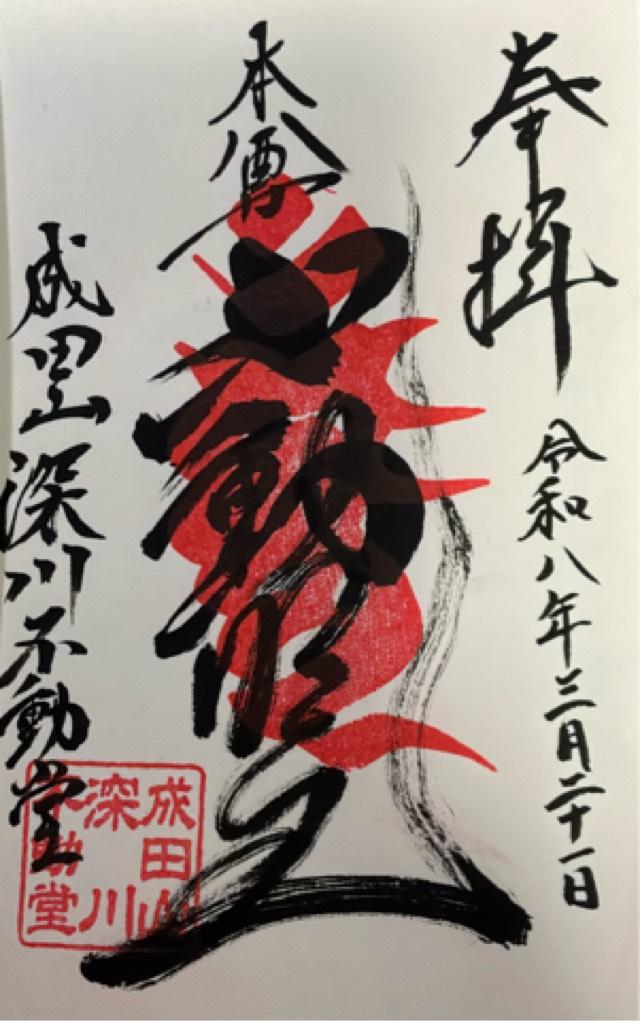 奉拝
令和八年三月二十一日
本尊
不動明王
成田山深川不動堂
成田山
深川
不動堂